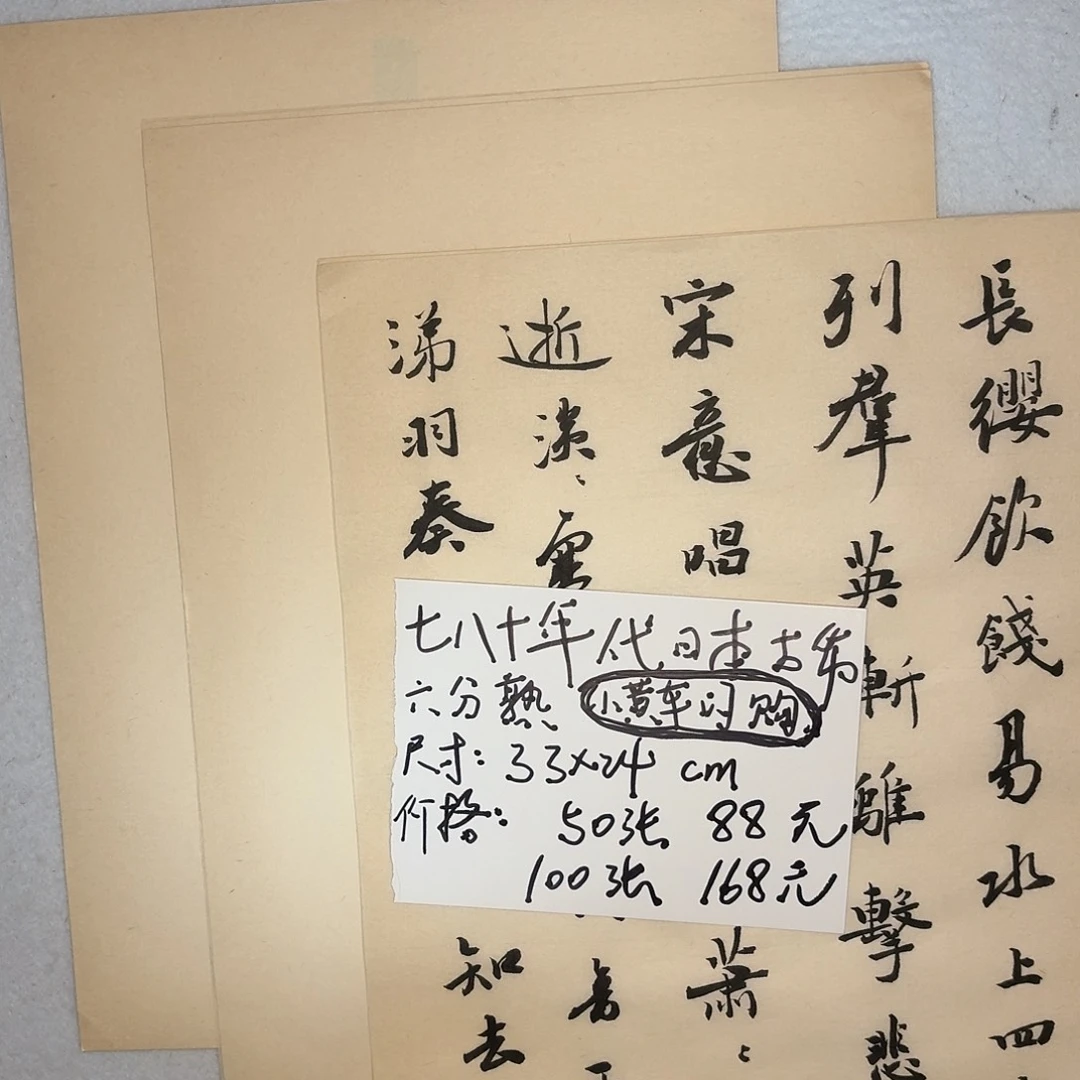 長纓飲餞易水上四
列羣英漸離擊悲
宋意唱
蕭〻
逝淡〻
音
涕羽奏
知去
七八十年代日本古
六分熟 小黄车可购
尺寸:33×24 cm
价格:50张 88元
100张 168元